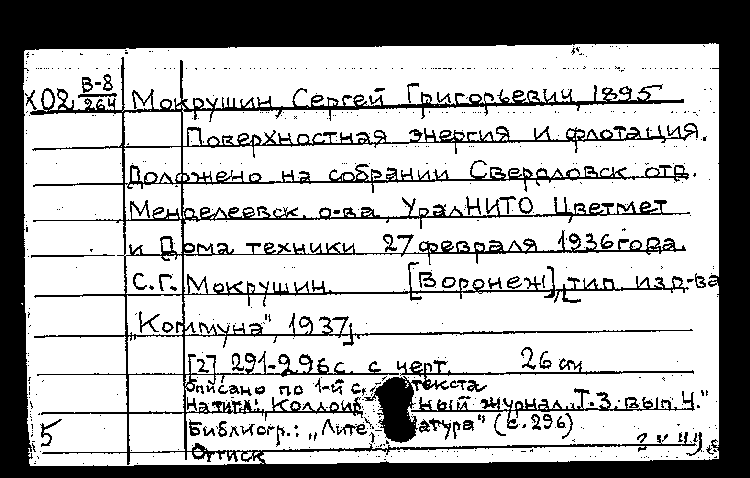 Х02 В-8/264 Мокрушин, Сергей Григорьевич, 1895
Поверхностная энергия и флотация.
Доложено на собрании Свердловск. отд.
Менделеевск. о-ва, УралНИТО Цветмет
и Дома техники 27 февраля 1936 года.
С.Г. Мокрушин. [Воронеж], тип. изд-ва
„Коммуна", 1937].
[2], 291-296 с. с черт. 26 см
Описано по 1-й с. текста
На тит. л.: „Коллоид ный журнал. Т-3. вып. 4."
5 Библиогр.: „Лите атура" (с. 296)
Оттиск